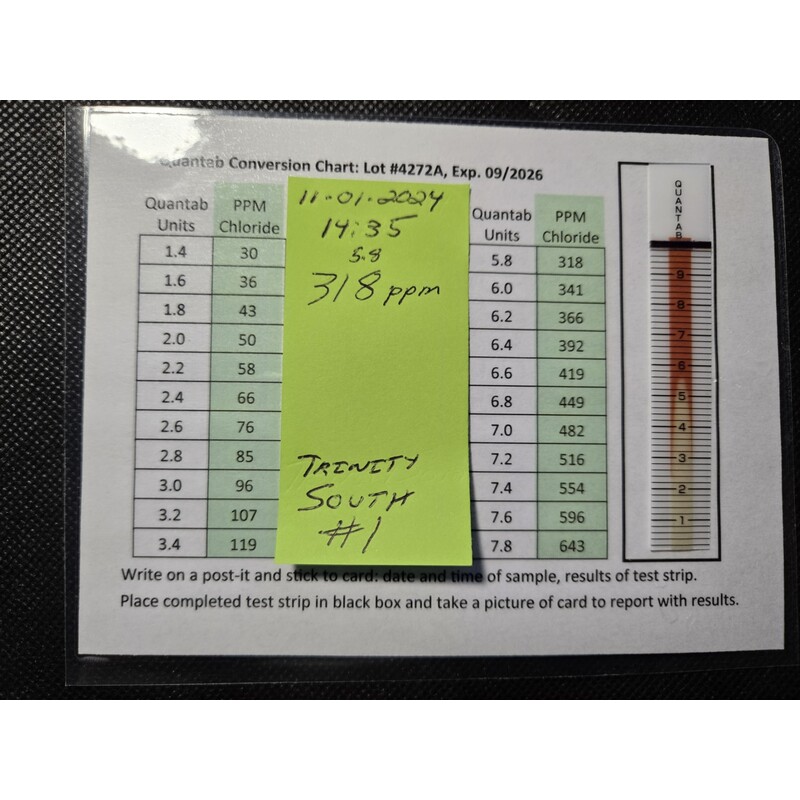 Quantab Conversion Chart: Lot #4272A, Exp. 09/2026
Quantab Units PPM Chloride
1.4 30
1.6 36
1.8 43
2.0 50
2.2 58
2.4 66
2.6 76
2.8 85
3.0 96
3.2 107
3.4 119
11-01-2024
14:35
5.8
318 ppm
TRINITY
SOUTH
#1
Quantab Units PPM Chloride
5.8 318
6.0 341
6.2 366
6.4 392
6.6 419
6.8 449
7.0 482
7.2 516
7.4 554
7.6 596
7.8 643
QUANTAB
9
8
7
6
5
4
3
2
1
Write on a post-it and stick to card: date and time of sample, results of test strip.
Place completed test strip in black box and take a picture of card to report with results.